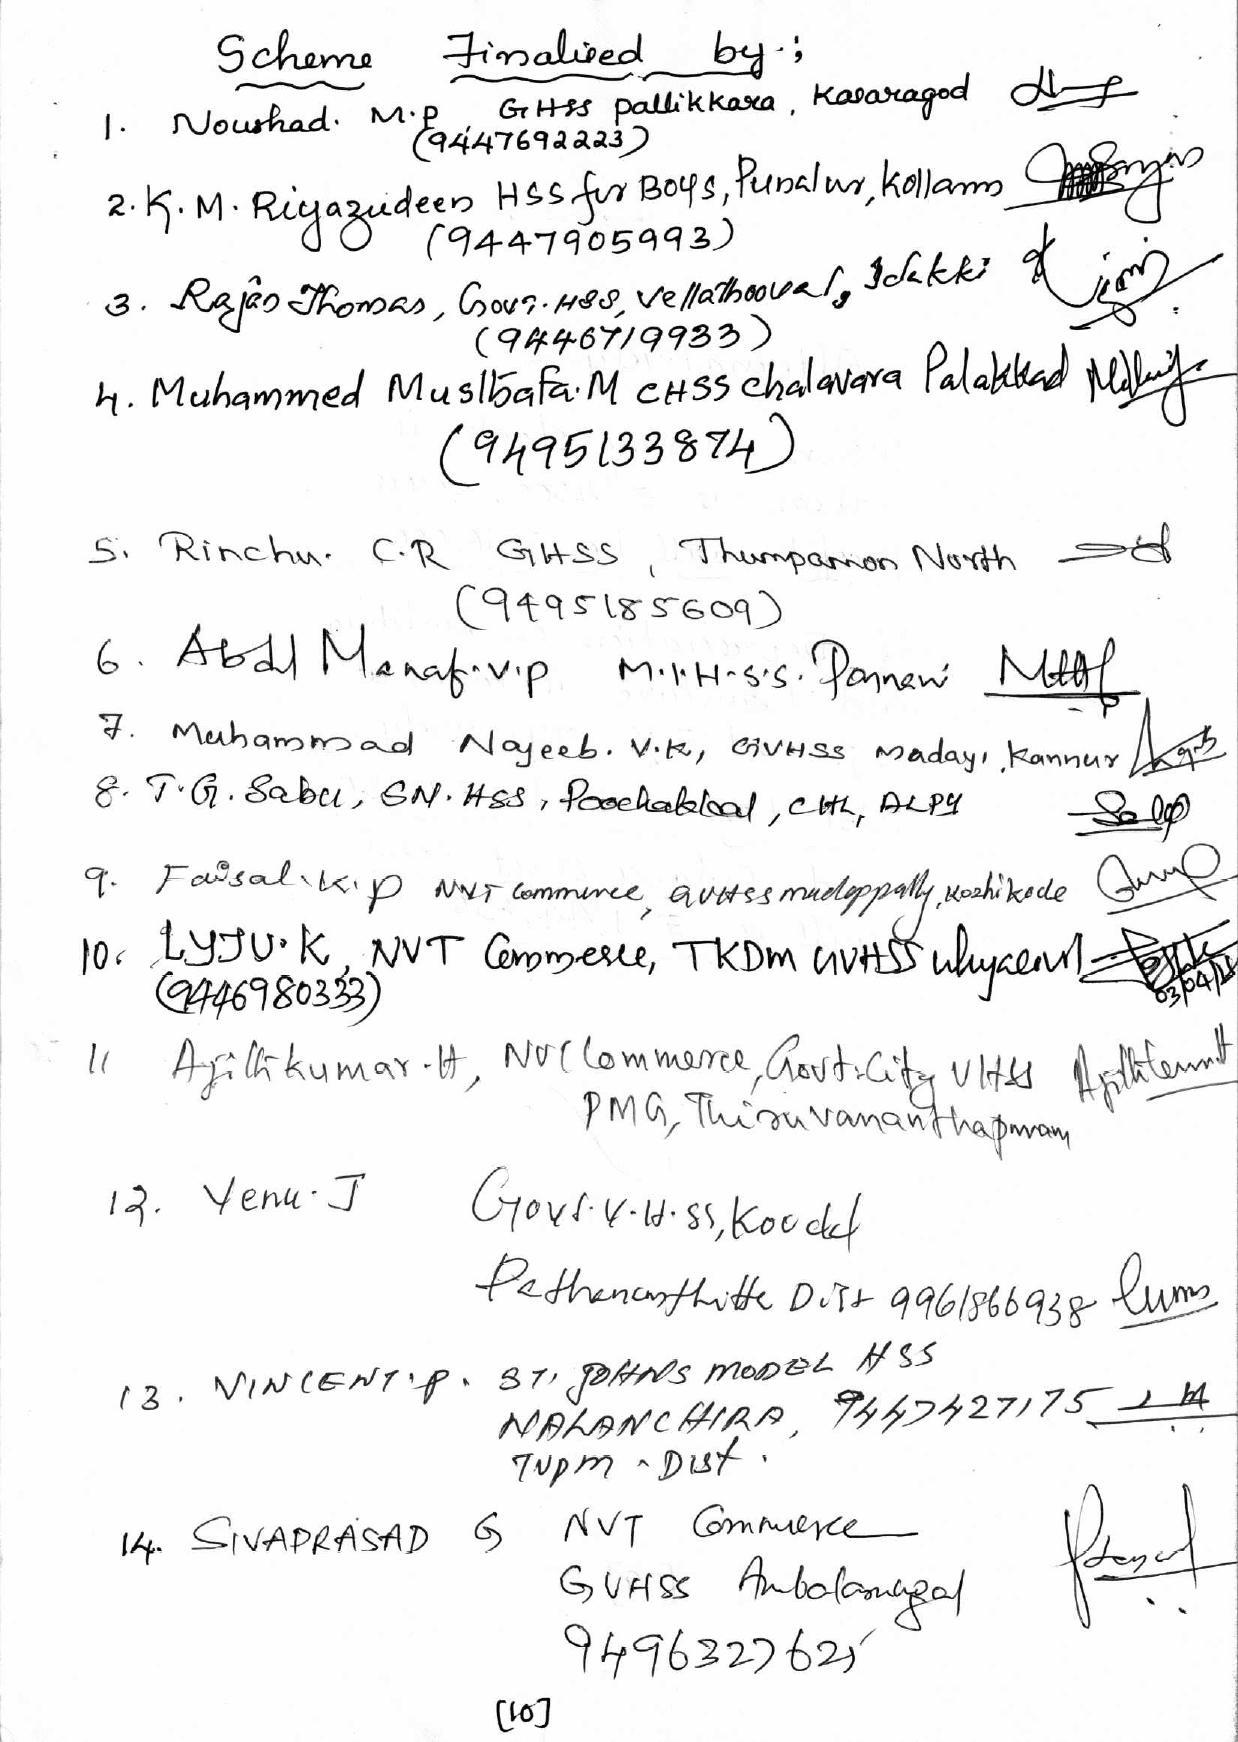 Scheme Finalised by:;
1. Noushad. M.P, GHSS pallikkara, Kasaragod
(9447692223)
2. K. M. Riyazudeen HSS for Boys, Punalur, Kollam
(9447905993)
3. Rajan Thomas, Govt. HSS, Vellathooval, Idukki
(9446719933)
4. Muhammed Musthafa. M CHSS Chalavara Palakkad
(9495133874)
5. Rinchu. C.R GHSS, Thumpamon North
(9495185609)
6. Abdul Manaf. V.P M.I.H.S.S. Ponnani
7. Muhammad Najeeb. V.K, GVHSS Madayi, Kannur
8. T.G. Sabu, SN. HSS, Poochakkal, CHL, ALPY
9. Faisal. K. P NVT Commerce, GVHSS madappally, Kozhikode
10. LYJU. K, NVT Commerce, TKDM GVHSS
(9446980333)
11 Ajithkumar. H, NVT Commerce, Govt. City VHSS
PMG, Thiruvananthapuram
12. Venu. J Govt. V. H. SS, Koodal
Pathanamthitta Dist 9961866938
13. VINCENT. P. ST. JOHNS MODEL HSS
NALANCHIRA, 9447427175
TVPM - Dist.
14. SIVAPRASAD G NVT Commerce
GVHSS Ambalamugal
9496327625
[10]